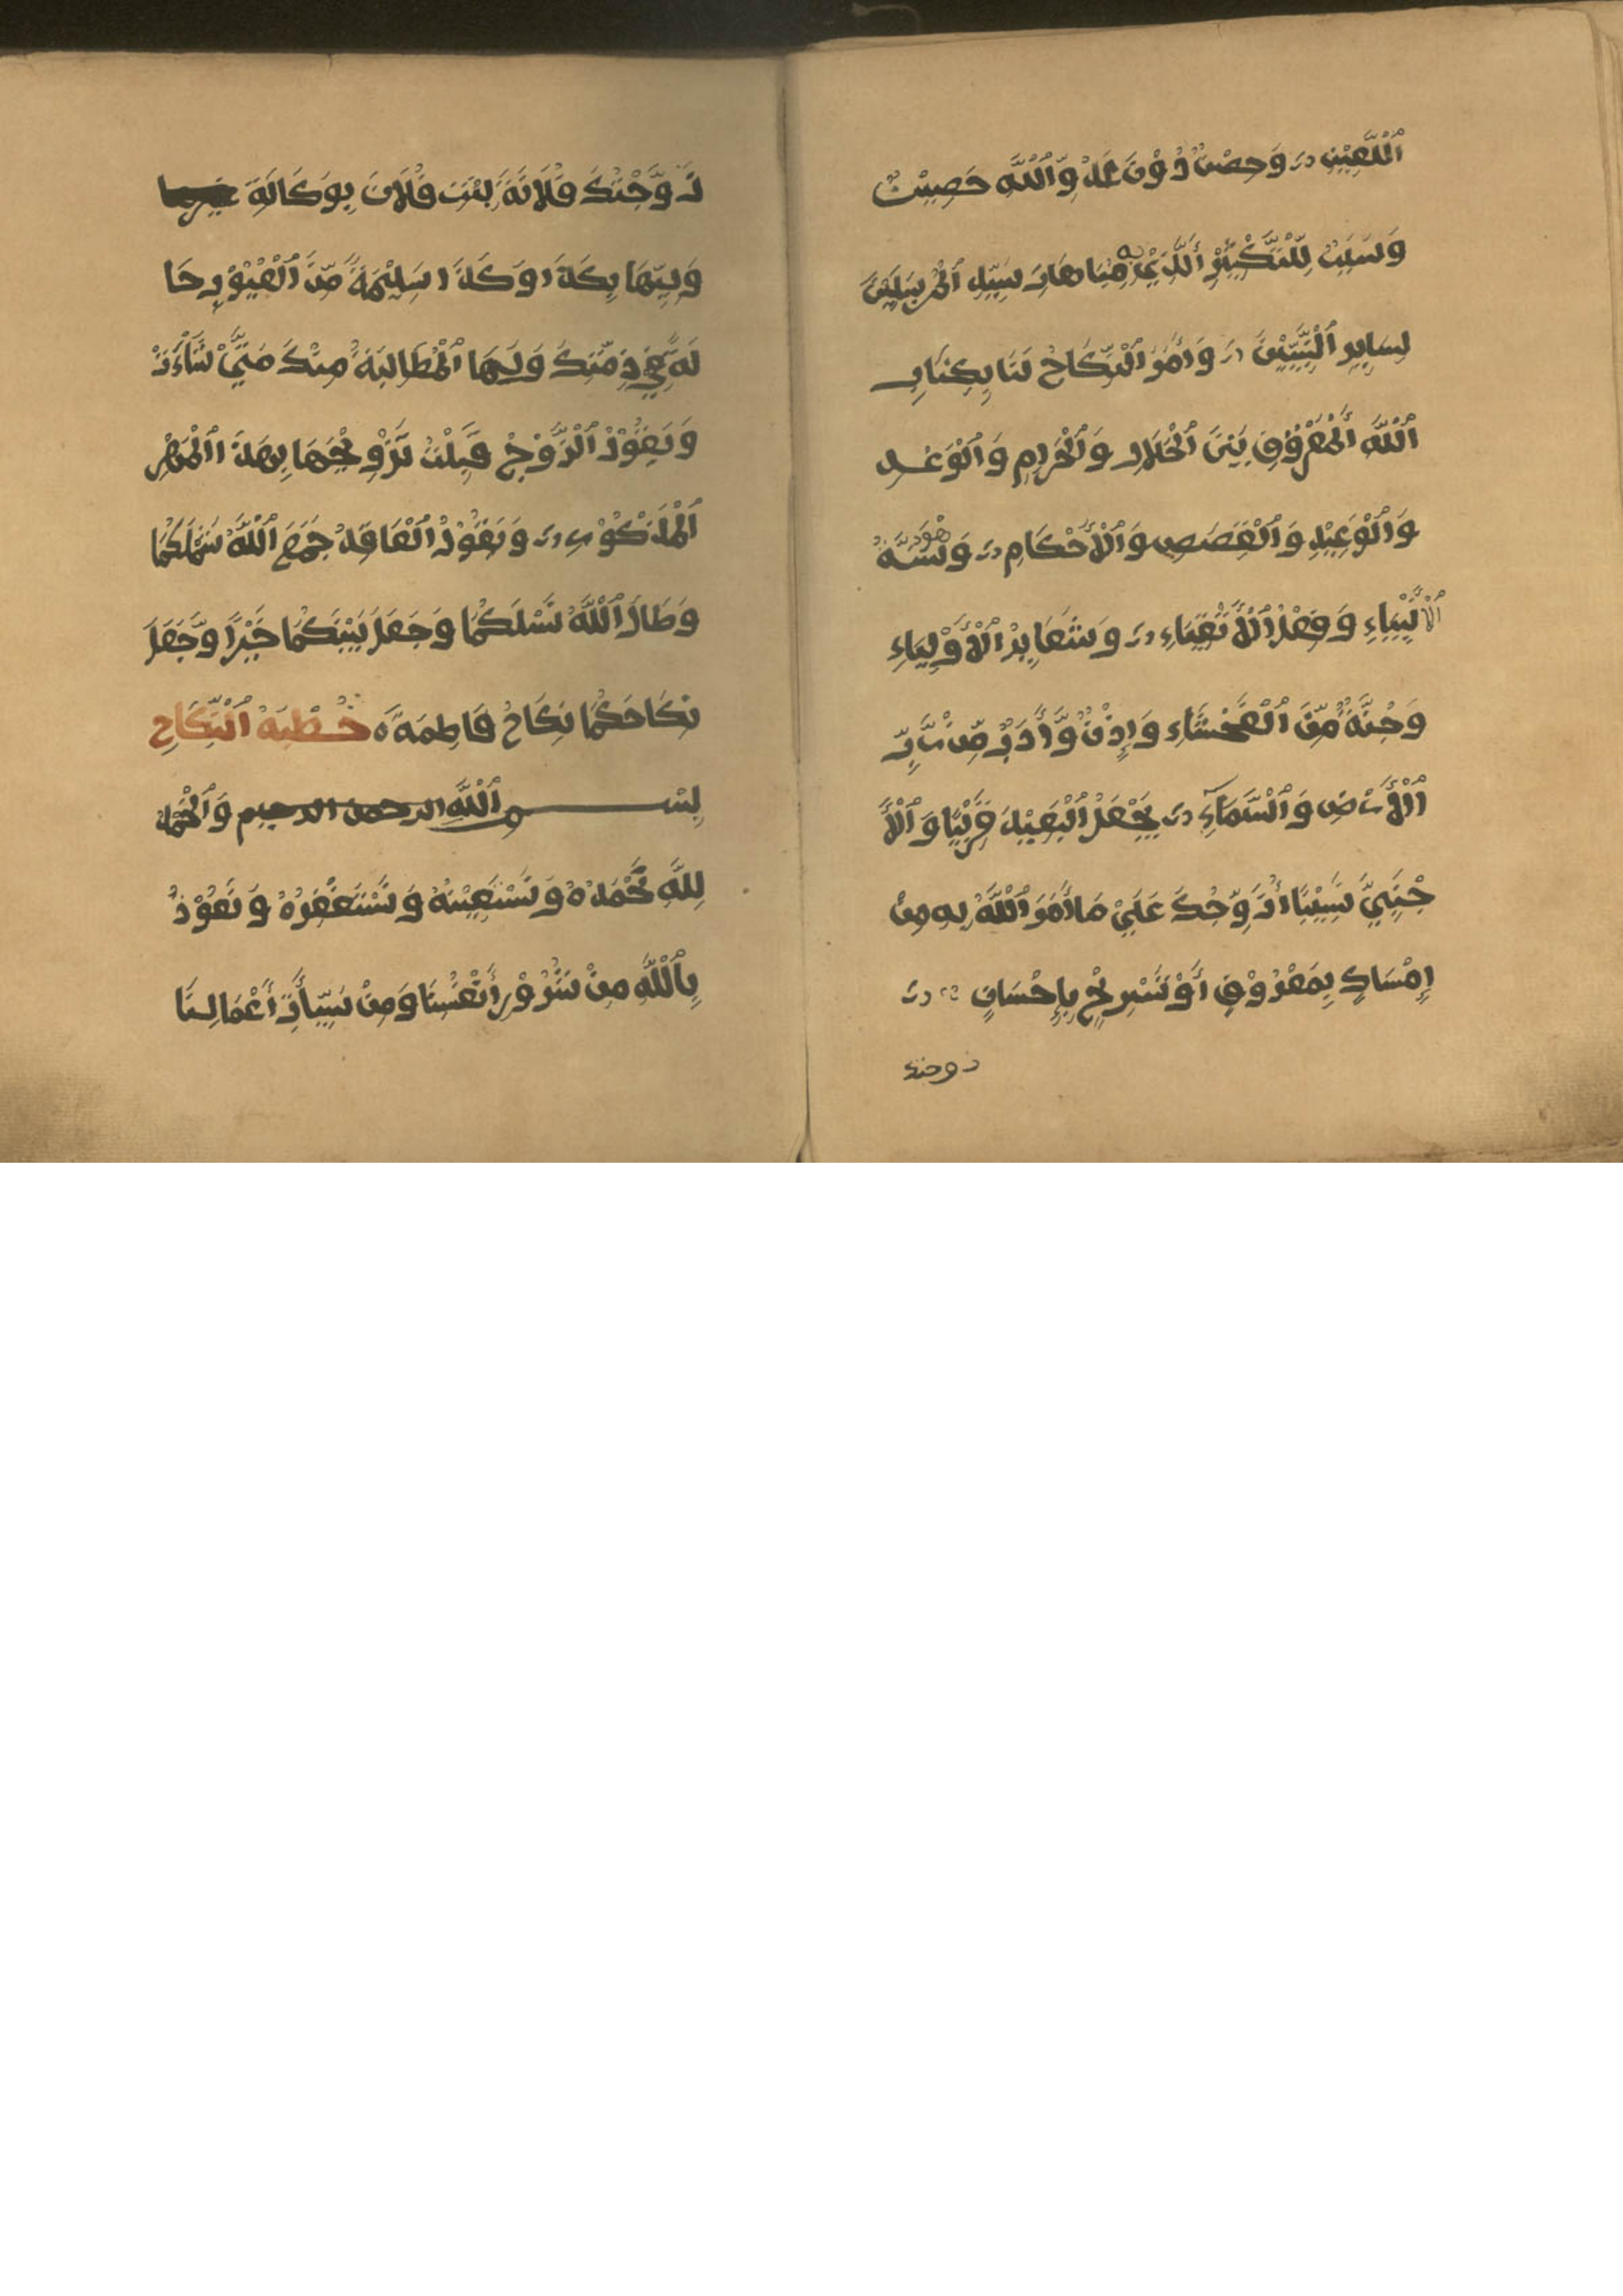 اَللَّعِيْنِ وَحِصْنٌ دُوْنَ عَدُوِّ اَللَّهِ حَصِيْنٌ
وَسَبَبٌ لِّلتَّكْثِيْرِ أَلَّذِيْ بِهِ مُبَاهَات سَيِّدِ اَلْمُرْسَلِيْنَ
لِسَايِرِ اَلنَّبِيِّيْنَ وَأَمْرُ اَلنِّكَاحُ لَنَا بِكِتَابِ
اَللَّهِ اَلْمَفْرُوْقِ بَيْنَ اَلْحَلَالِ وَاَلْحَرَامِ وَاَلْوَعْدِ
وَاَلْوَعِيْدِ وَاَلْقَصَصِ وَاَلْأَحْكَامِ وَهُوَ سُنَّةُ
اَلْأَنْبِيَاءِ وَفِعْلُ اَلْأَتْقِيَاءِ وَشَعَايِرُ اَلْأَوْلِيَاءِ
وَجُنَّةٌ مِّنَ اَلْفَحْشَاءِ وَإِذْنٌ وَّأَدَبٌ مِّنْ رَّبِّ
اَلْأَرْضِ وَاَلسَّمَاءِ يَجْعَلُ اَلْبَعِيْدَ قَرِيْبًا وَاَلْأَ
جْنَبِيَّ نَسِيْبًا أُزَوِّجُكَ عَلَيْ مَا أَمَرَ اَللَّهُ بِهِ مِنْ
إِمْسَاكٍ بِمَعْرُوْفٍ أَوْ تَسْرِيْحٍ بِإِحْسَانٍ
زوجتك
زَوَّجْتُكَ فُلَانَةَ بِنْتَ فُلَانَ بِوَكَالَةِ
وَلِيِّهَا بِكَذَا وَكَذَا سَلِيْمَةً مِّنَ اَلْعُيُوْبِ حَا
لَّةً فِيْ ذِمَّتِكَ وَلَهَا اَلْمُطَالَبَةُ مِنْكَ مَتَيْ شَاءَتْ
وَيَقُوْلُ اَلزَّوْجُ قَبِلْتُ تَزْوِيْجَهَا بِهَذَا اَلْمَهْرِ
اَلْمَذْكُوْرِ وَيَقُوْلُ اَلْعَاقِدُ جَمَعَ اَللَّهُ شَمْلَكُمَا
وَطَالَ اَللَّهُ نَسْلَكُمَا وَجَعَلَ بَيْنَكُمَا خَيْرًا وَّجَعَلَ
نِكَاحَكُمَا نِكَاحُ فَاطِمَةَ ه خُطْبَةُ اَلنِّكَاحِ
بسم اَللَّهِ الرحمن الرحيم وَاَلْحَمْدُ
لِلَّهِ نَحْمَدُهُ وَنَسْتَعِيْنُهُ وَنَسْتَغْفِرُهُ وَنَعُوْذُ
بِاَللَّهِ مِنْ شُرُوْرِ أَنْفُسِنَا وَمِنْ سَيِّأَتِ أَعْمَالِنَا